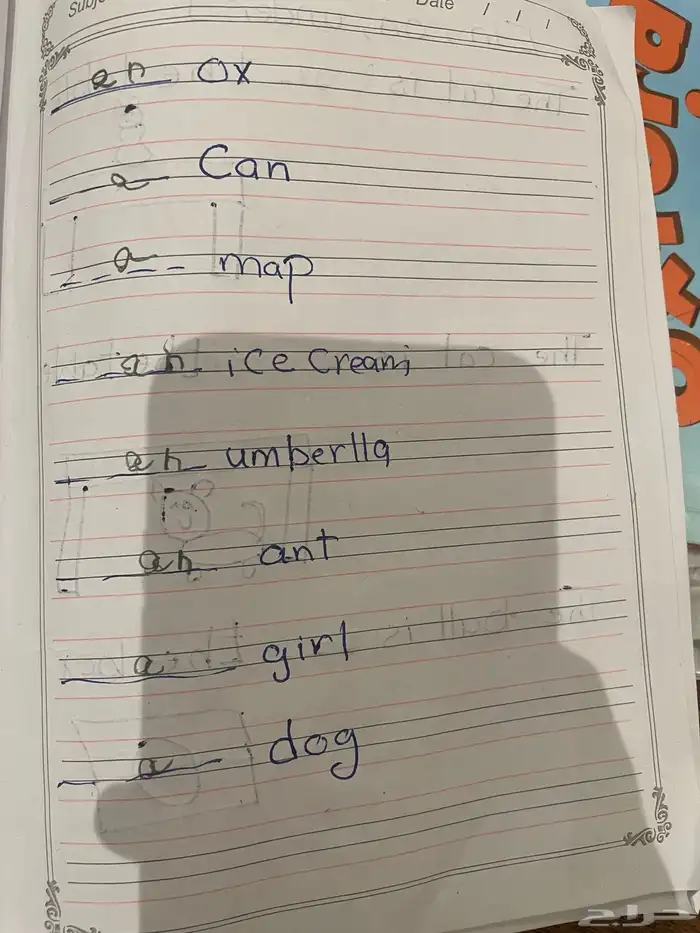 Date / / /
an ox
a Can
a map
an ice cream
an umberlla
an ant
a girl
a dog
حراج